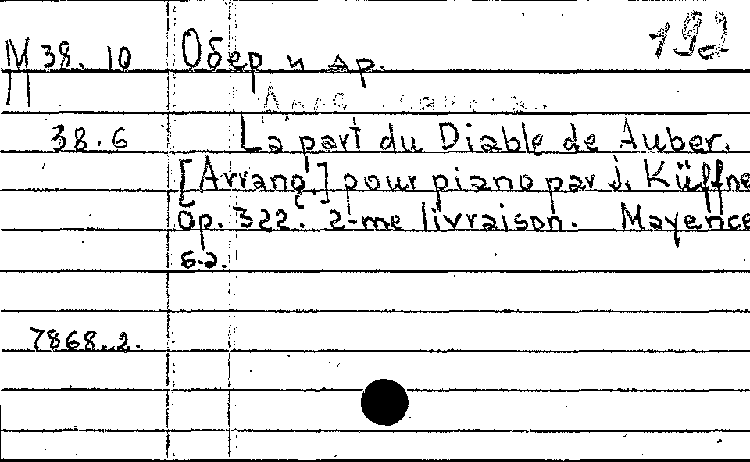 192
М 38. 10 Обер и др.
П
38.6 La part du Diable de Auber.
[Arrang.] pour piano par J. Küffne
Op. 322. 2-me livraison. Mayence
s.a.
7868.2.